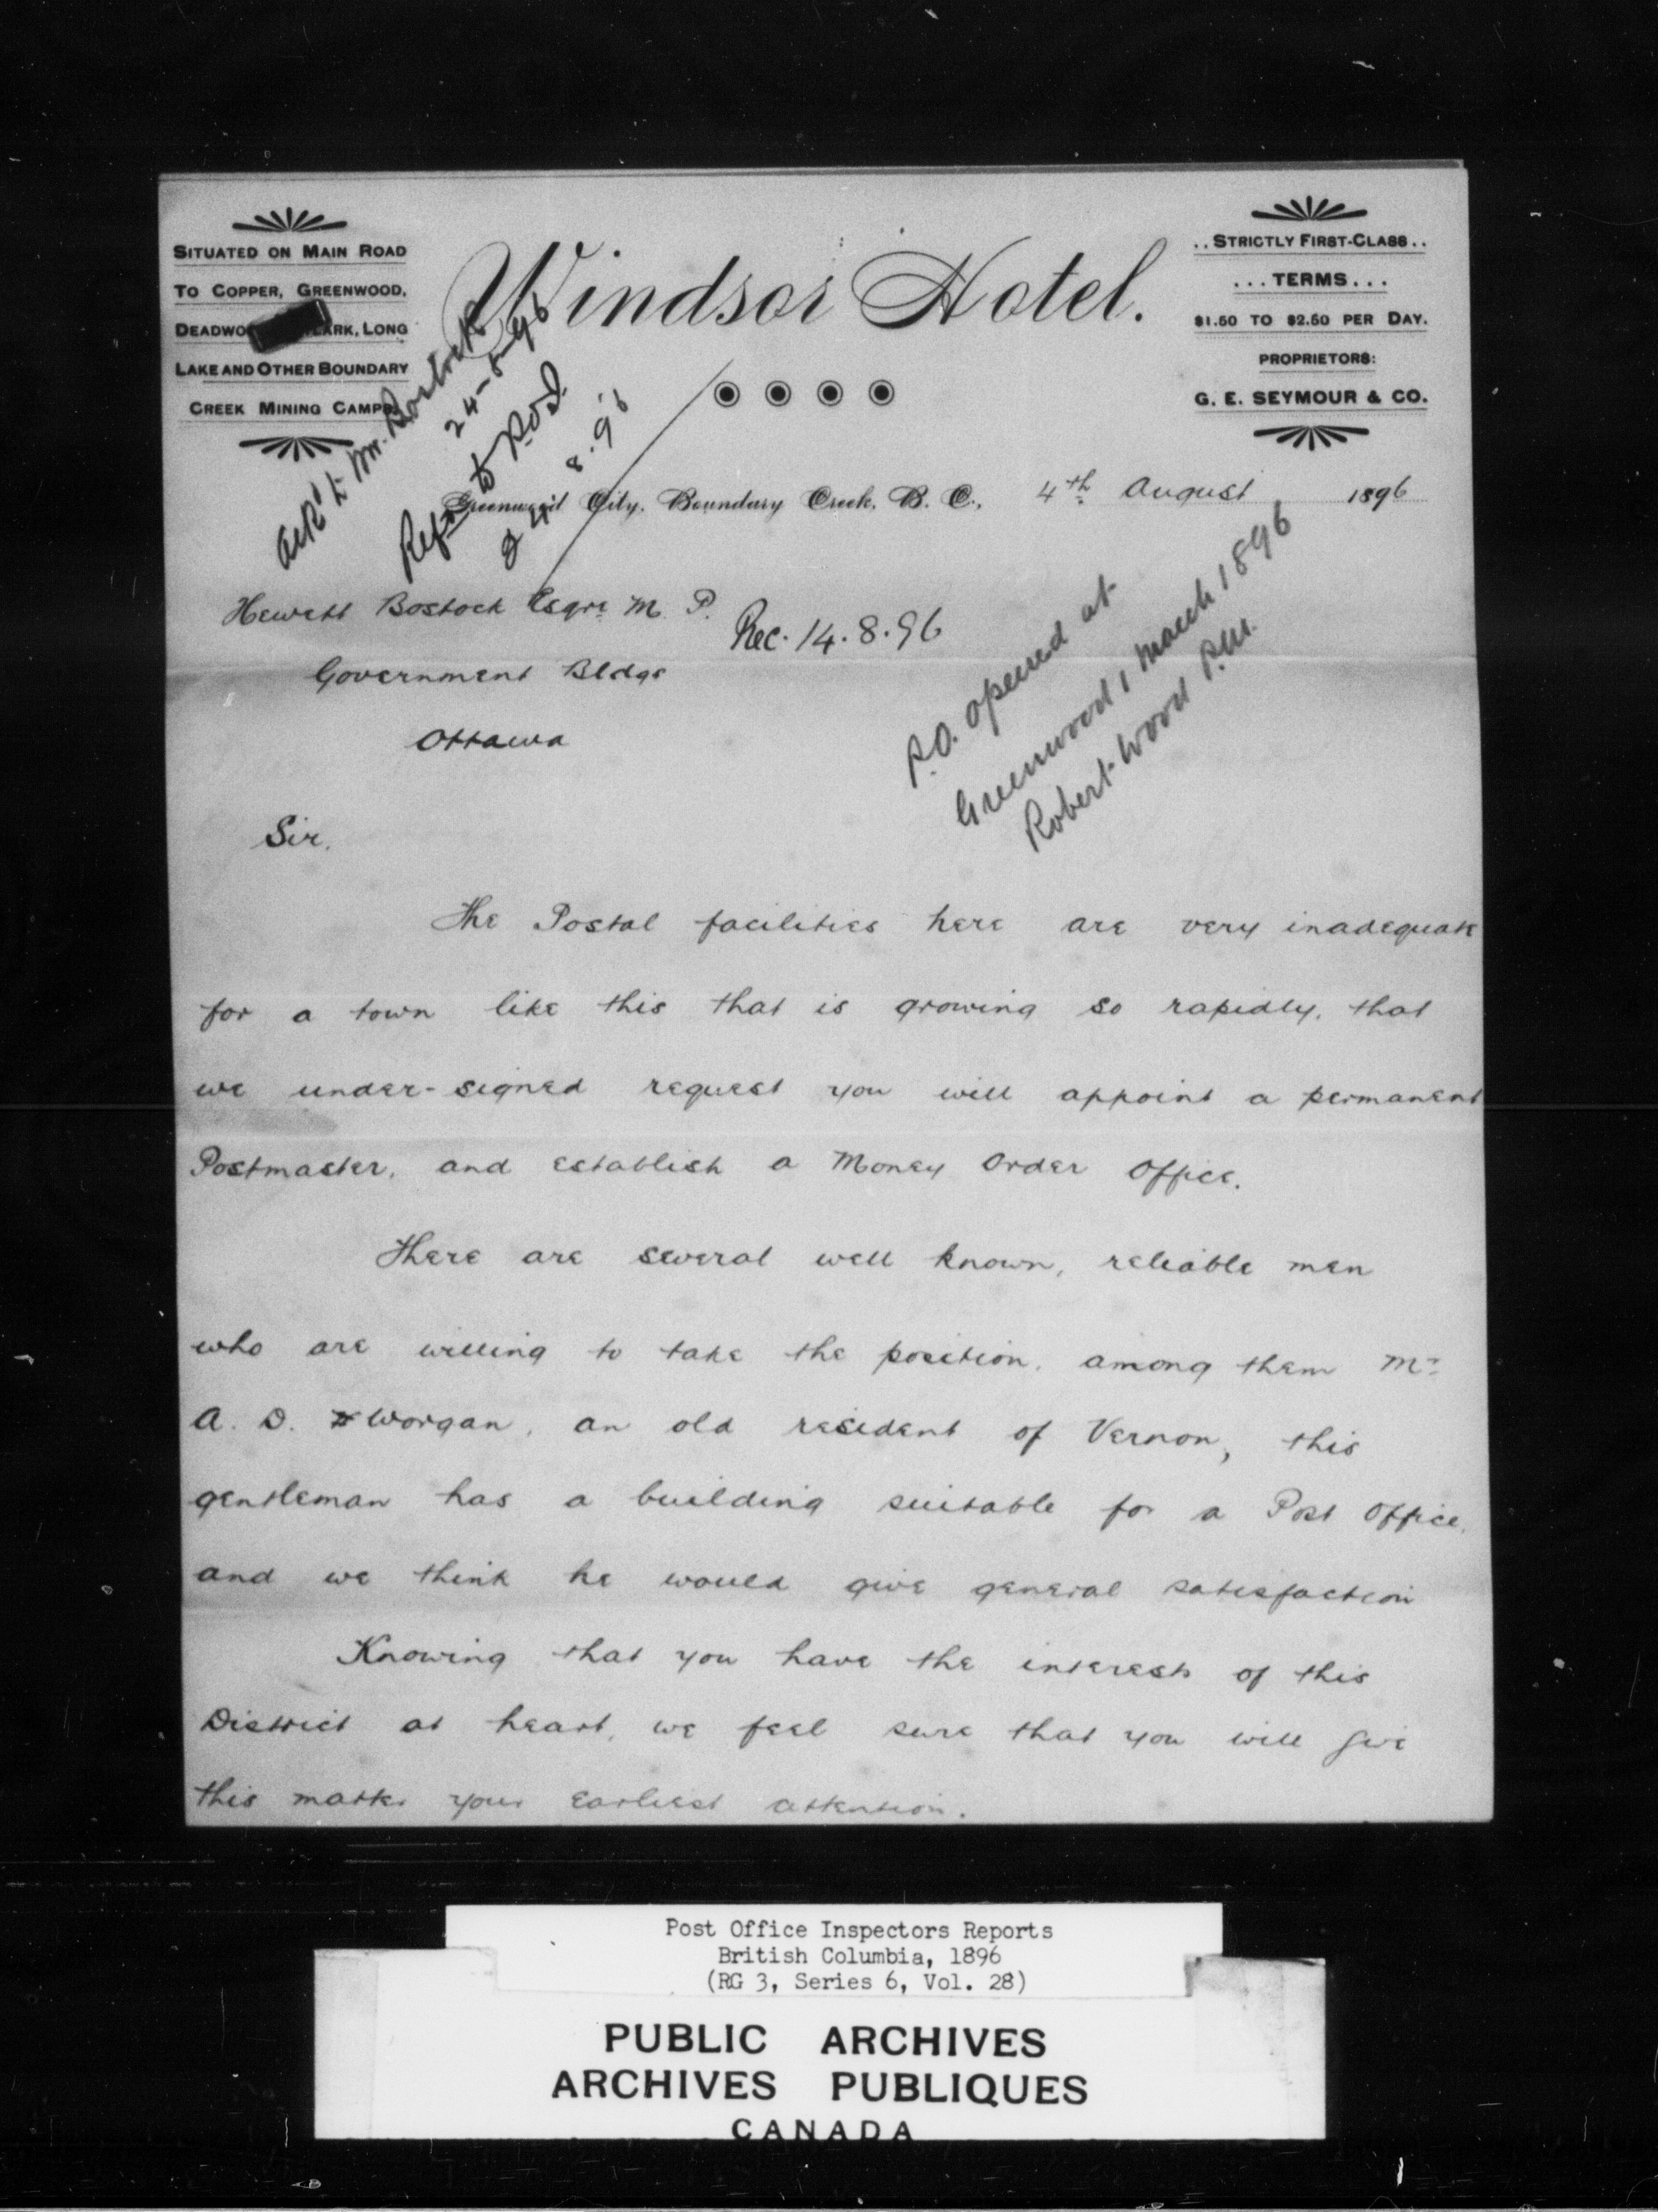 SITUATED ON MAIN ROAD
TO COPPER, GREENWOOD,
ARK, LONG
LAKE AND OTHER BOUNDARY
CREEK MINING CAMPS.
Windsor Hotel.
..STRICTLY FIRST-CLASS..
...TERMS...
$1.50 TO $2.50 PER DAY.
PROPRIETORS:
G. E. SEYMOUR & CO.
Ack'd to Mr. Bostock
24-8-96
Ref'd to P.O.I.
8.96
Greenwood City, Boundary Creek, B. C., 4th August 1896
Hewett Bostock Esqre M. P.
Rec. 14.8.96
Government Bldgs
Ottawa
P.O. opened at
Greenwood 1 March 1896
Robert Wood P.M.
Sir,
The Postal facilities here are very inadequate
for a town like this that is growing so rapidly, that
we under-signed request you will appoint a permanent
Postmaster, and establish a Money Order Office.
There are several well known, reliable men
who are willing to take the position, among them Mr
A. D. Worgan, an old resident of Vernon, this
gentleman has a building suitable for a Post Office,
and we think he would give general satisfaction
Knowing that you have the interests of this
District at heart, we feel sure that you will give
this matter your earliest attention.
Post Office Inspectors Reports
British Columbia, 1896
(RG 3, Series 6, Vol. 28)
PUBLIC ARCHIVES
ARCHIVES PUBLIQUES
CANADA